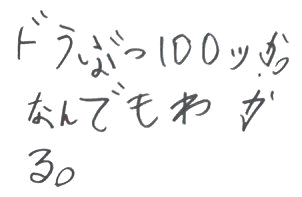 ドラぶつ100ッかつ
なんでもわが
る。